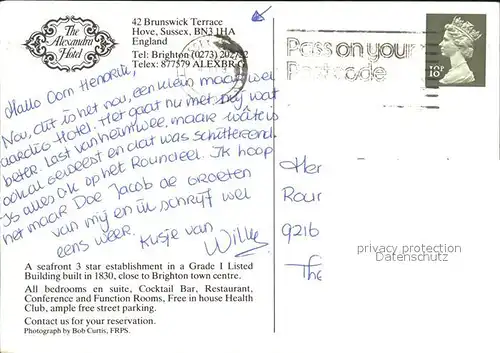 The
Alexandra
Hotel
42 Brunswick Terrace
Hove, Sussex, BN3 1HA
England
Tel: Brighton (0273) 202722
Telex: 877579 ALEXBR G
Pass on your
Postcode
Hallo Oom Hendrik,
Nou, dit is het nou, een klein maar wel
aardig Hotel. Het gaat nu met mij wat
beter. Last van heimwee, maar
ook al geweest en dat was schitterend.
Is alles o.k op het Roundeel. Ik hoop
het maar Doe Jacob de groeten
van mij en ik schrijf wel
eens weer. Kusje van
Willy
Her
Rour
9216
The
privacy protection
Datenschutz
A seafront 3 star establishment in a Grade I Listed
Building built in 1830, close to Brighton town centre.
All bedrooms en suite, Cocktail Bar, Restaurant,
Conference and Function Rooms, Free in house Health
Club, ample free street parking.
Contact us for your reservation.
Photograph by Bob Curtis, FRPS.